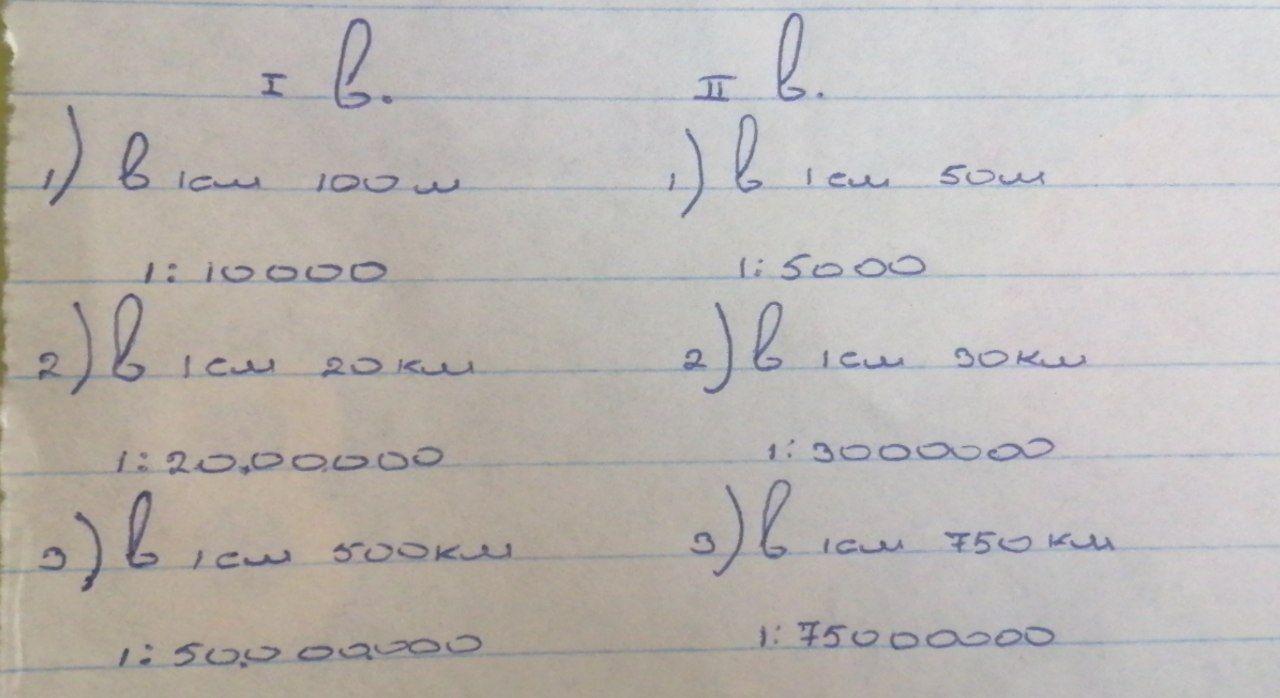 I в.
1) в 1см 100м
1:10000
2) в 1см 20км
1:20,00,000
3) в 1см 500км
1:50,000,000
II в.
1) в 1см 50м
1:5000
2) в 1см 30км
1:3000000
3) в 1см 750км
1:75000000